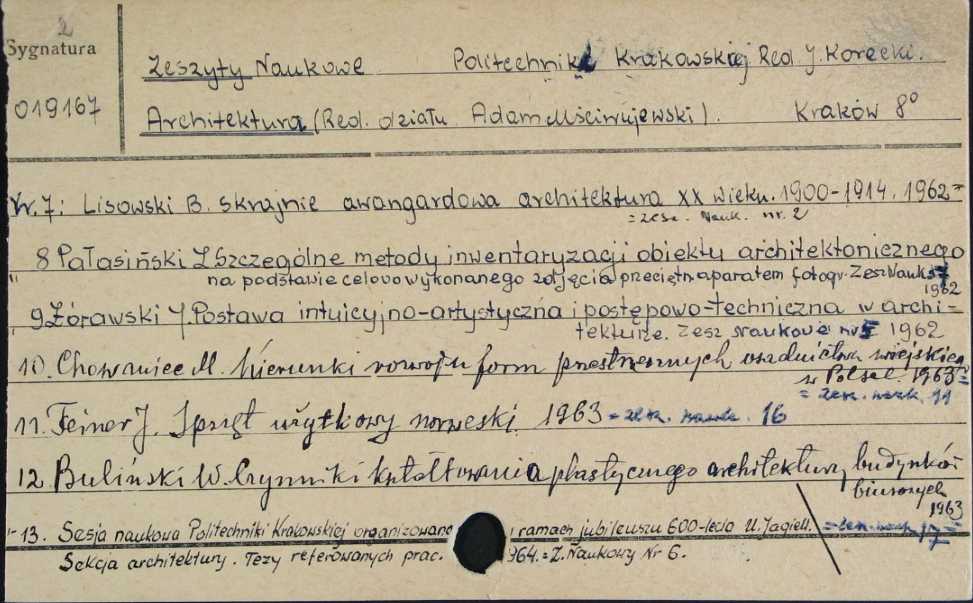 2
Sygnatura
Zeszyty Naukowe Politechniki Krakowskiej Red J. Korecki.
019167
Architektura (Red. działu Adam Mściwujewski). Kraków 8°
Nr. 7: Lisowski B. Skrajnie awangardowa architektura XX wieku. 1900-1914. 1962=
= zesz. Nauk. nr. 2
8 Pałasiński Z Szczególne metody inwentaryzacji obiektu architektonicznego
" na podstawie celowo wykonanego zdjęcia przeciętn. aparatem fotogr. Zesz Nauk
1962
9 Żórawski J. Postawa intuicyjno-artystyczna i postępowo-techniczna w archi-
tekturze. Zesz Naukowe nr 5 1962
10. Chowaniec M. Kierunki rozwoju form przestrzennych osadnictwa wiejskiego
w Polsce. 1963 =
= zesz. nauk. 11
11. Feiner J. Sprzęt użytkowy norweski. 1963 = zesz. nauk. 16
12. Buliński W. Czynniki kształtowania plastycznego architektury budynków
biurowych
1963
13. Sesja naukowa Politechniki Krakowskiej organizowana ramach jubileuszu 600-lecia U. Jagiell. = zesz. nauk. 17 =
Sekcja architektury. Tezy referowanych prac. 964. = Z. Naukowy Nr 6.